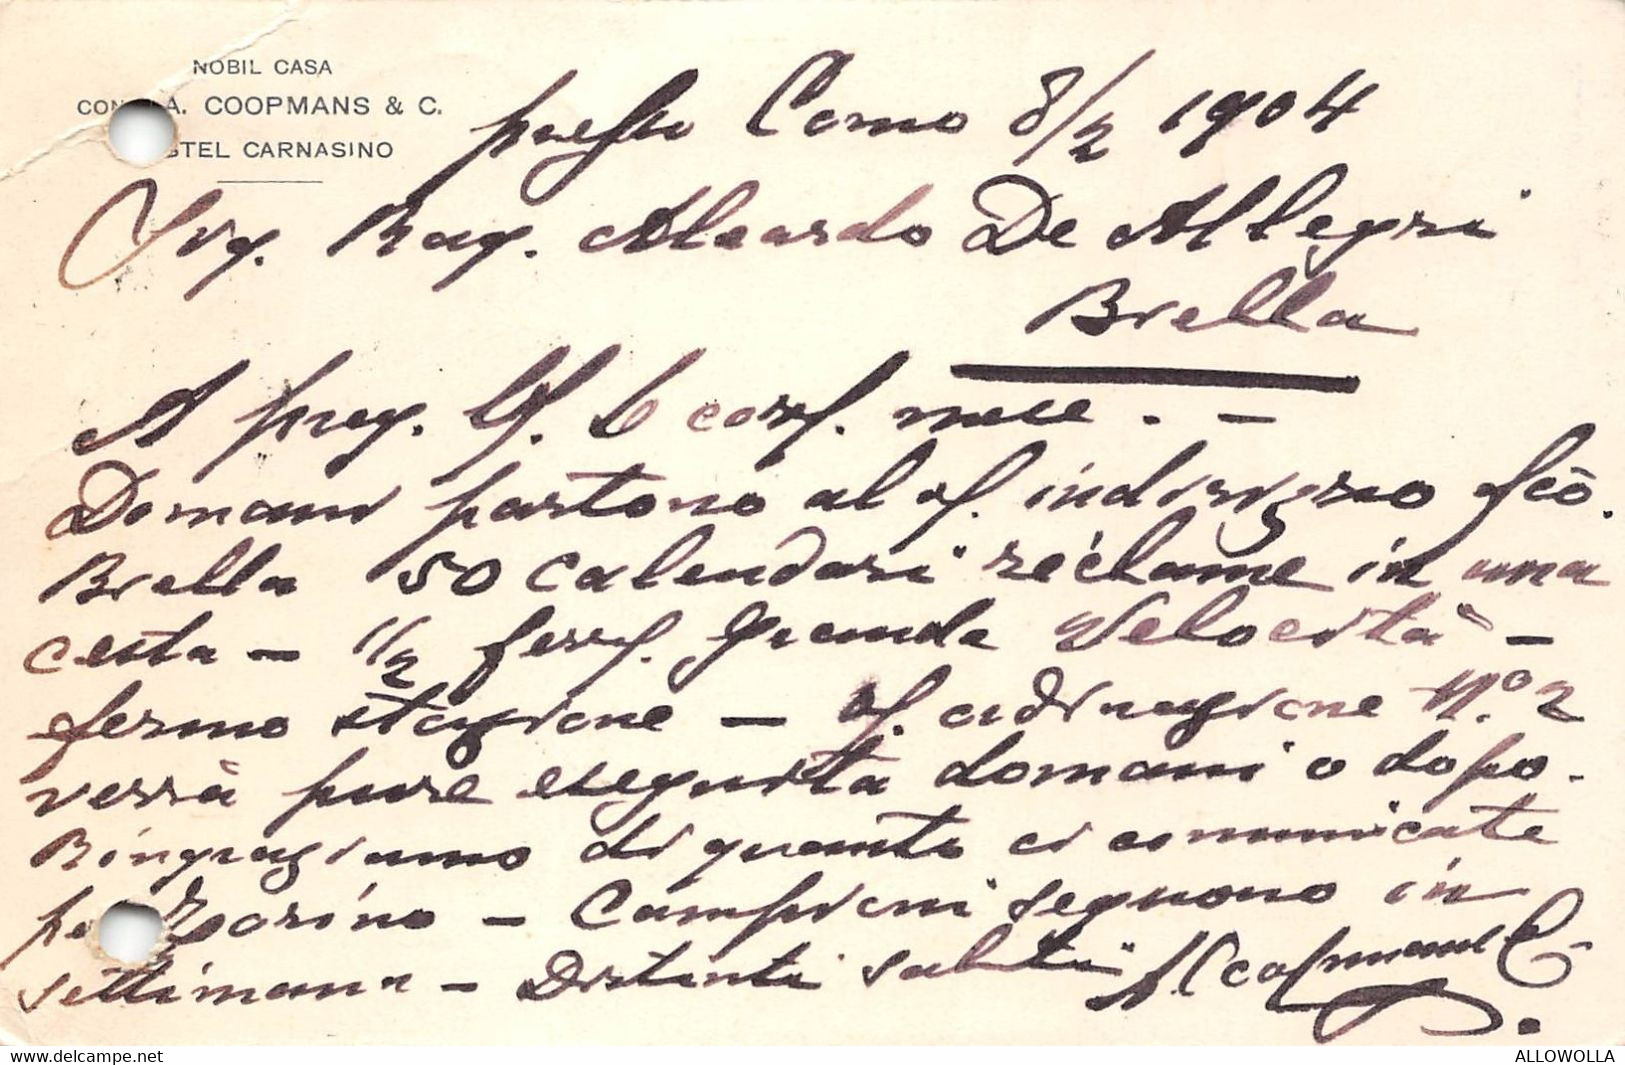 NOBIL CASA
A. COOPMANS & C.
STEL CARNASINO
presso Como 8/2 1904
Sig. Rag. Aleardo De Allegri
Biella
A preg. Vs. 6 corr. mese. -
Domani partono al vs. indirizzo fco.
Biella 50 calendari réclame in una
cesta - 1/2 ferr. grande velocità -
fermo stazione - vs. ordinazione N.° 2
verrà pure eseguita domani o dopo.
Ringraziamo di quanto ci comunicate
Campioni seguono in
settimana - Distinti saluti A. Coopmans & C.
ALLOWOLLA
www.delcampe.net